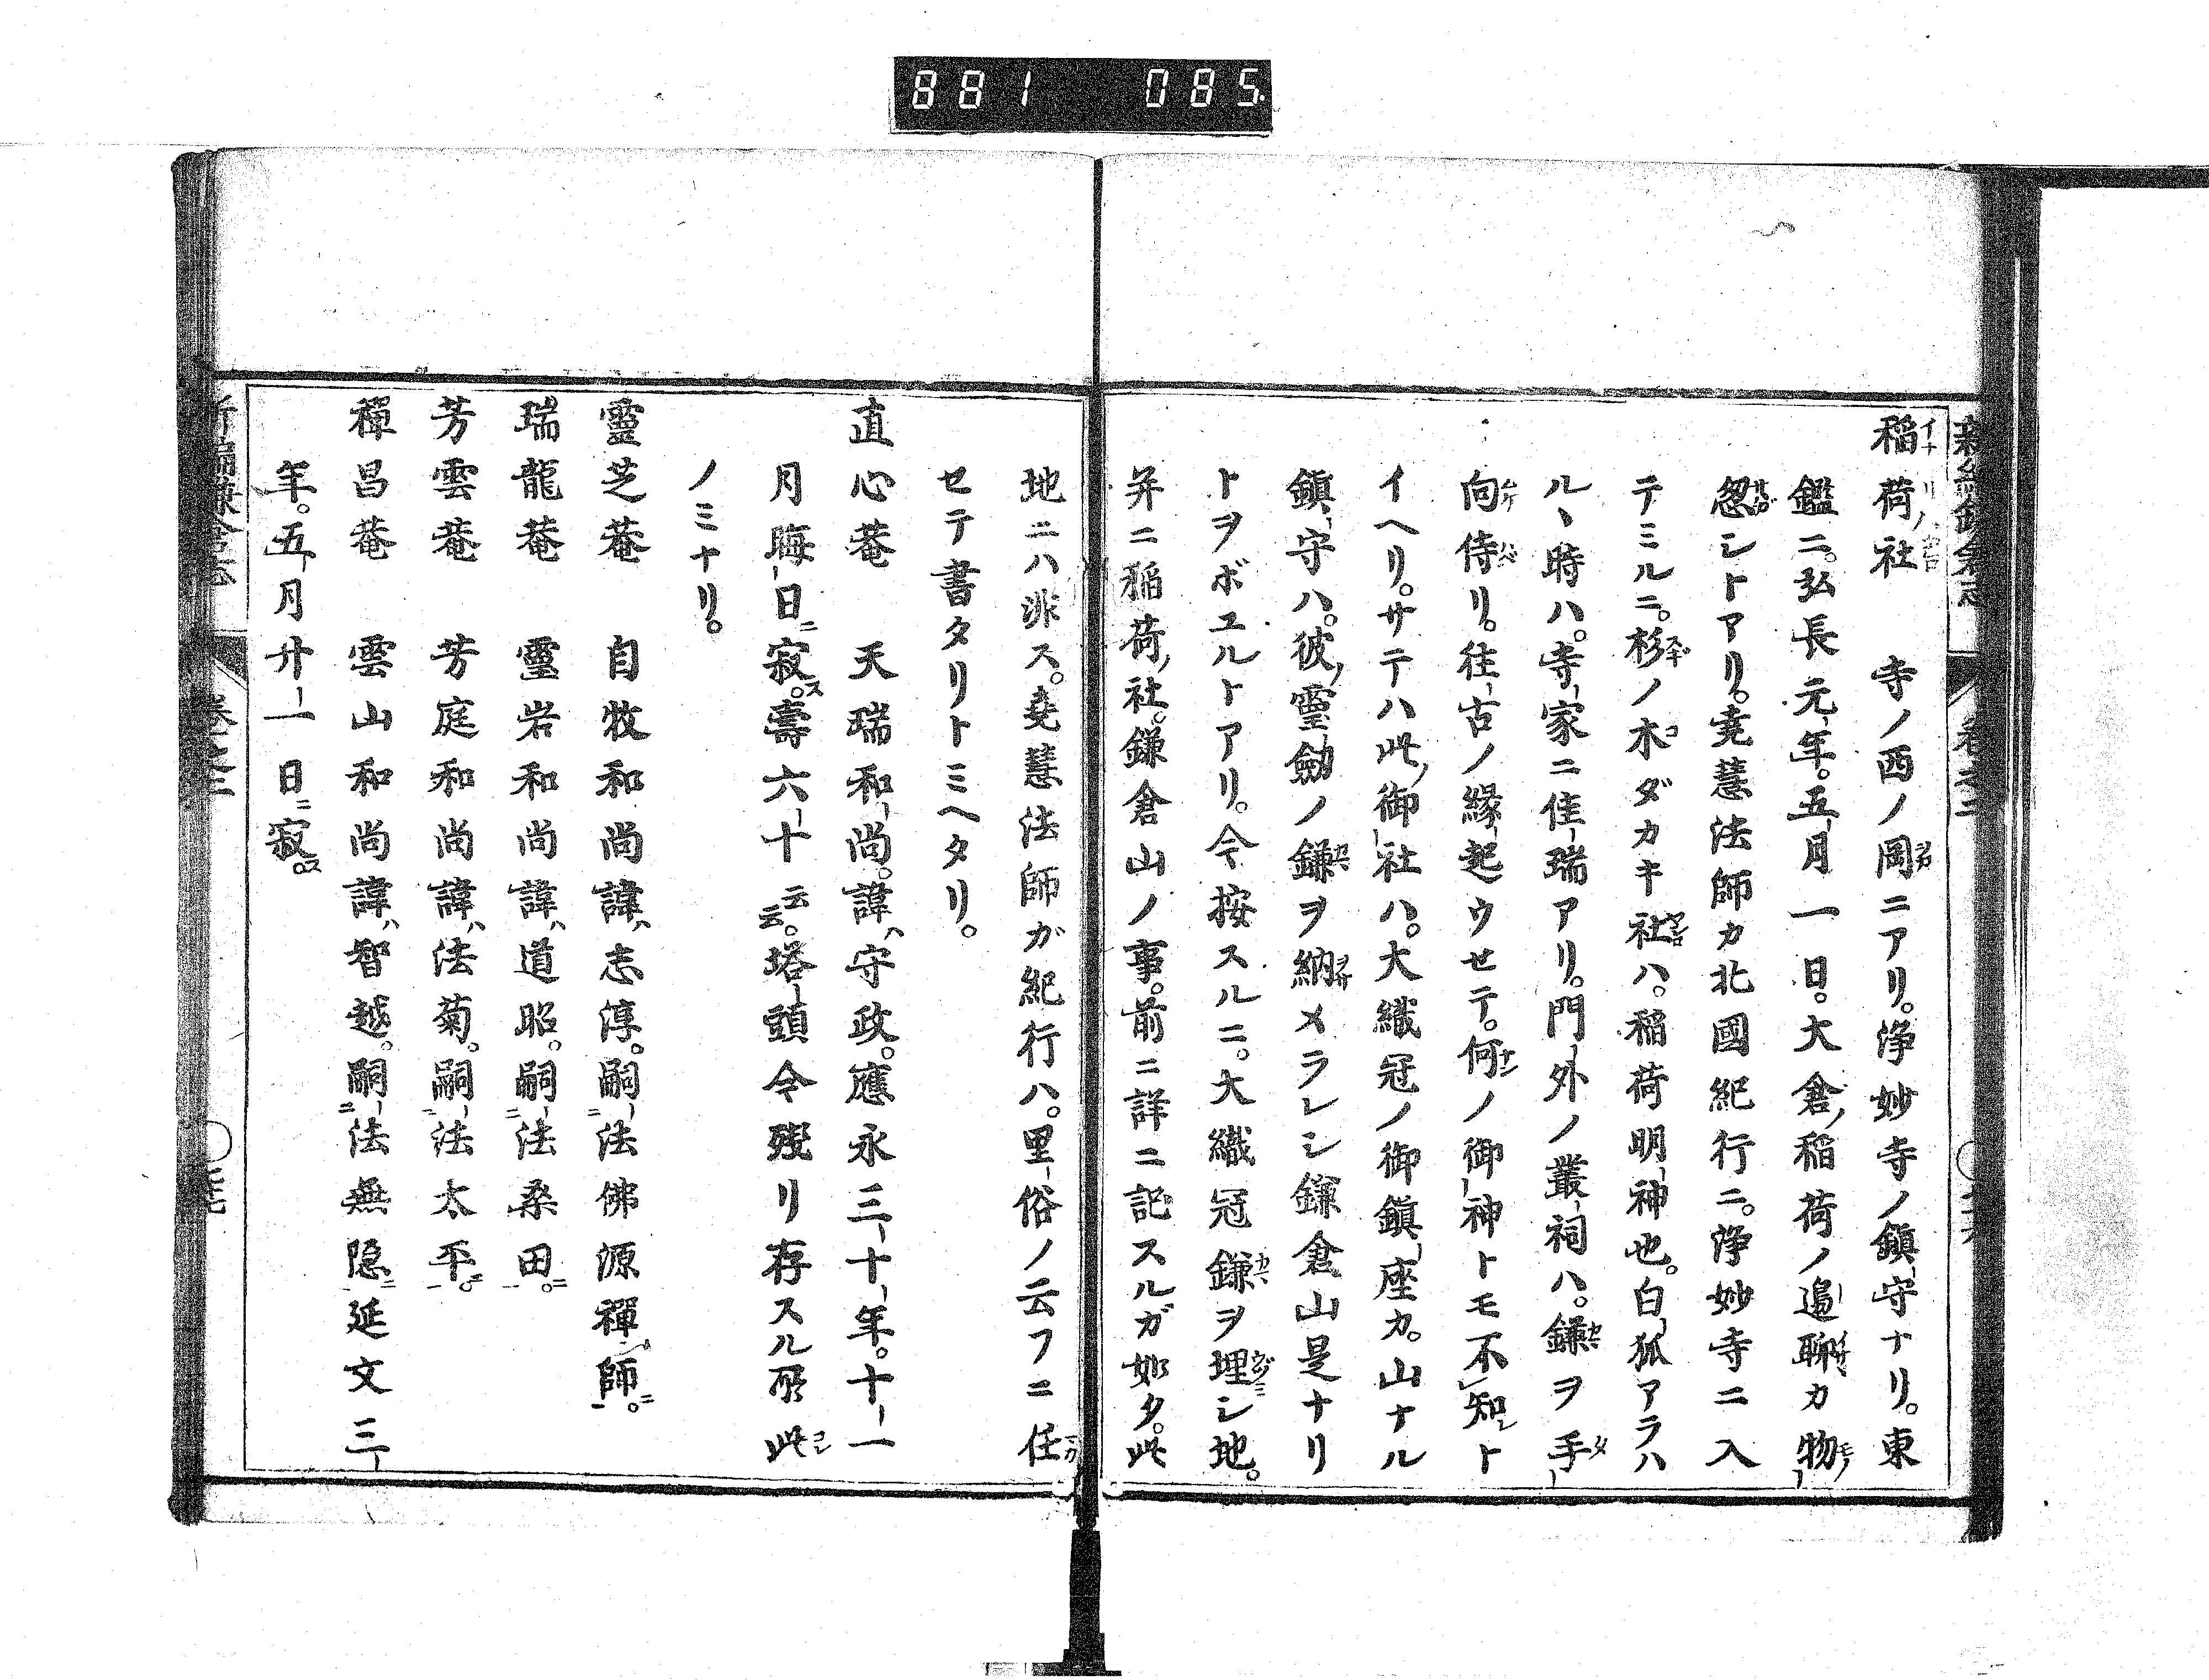 881 085
稲荷社　寺ノ西ノ岡ニアリ。浄妙寺ノ鎮守ナリ。東
鑑ニ。弘長元年。五月一日。大倉稲荷ノ邊聊カ物
忩シトアリ。堯慧法師カ北國紀行ニ。浄妙寺ニ入
テミルニ。杉ノ木ダカキ社ハ。稲荷明神也。白狐アラハ
ルヽ時ハ。寺家ニ佳瑞アリ。門外ノ叢祠ハ。鎌ヲ手
向侍リ。往古ノ縁起ウセテ。何ノ御神トモ不知ト
イヘリ。サテハ此御社ハ。大織冠ノ御鎮座カ。山ナル
鎮守ハ。彼靈劔ノ鎌ヲ納メラレシ鎌倉山是ナリ
トヲボユルトアリ。今按スルニ。大織冠鎌ヲ埋シ地。
并ニ稲荷社。鎌倉山ノ事。前ニ詳ニ記スルガ如タ。此
地ニハ泒ス。堯慧法師ガ紀行ハ。里俗ノ云フニ任
セテ書タリトミヘタリ。
直心菴　天瑞和尚。諱ハ守政。應永三十年。十一
月晦日ニ寂ス。壽六十云云。塔頭今殘リ存スル所此
ノミナリ。
靈芝菴　自牧和尚諱ハ志淳。嗣法佛源禪師ニ。
瑞龍菴　靈岩和尚諱ハ道昭。嗣法桑田ニ。
芳雲菴　芳庭和尚諱ハ法菊。嗣法太平ニ。
禪昌菴　雲山和尚諱ハ智越。嗣法無隠ニ延文三
年。五月廿一日ニ寂ス。
新編鎌倉志　卷之二